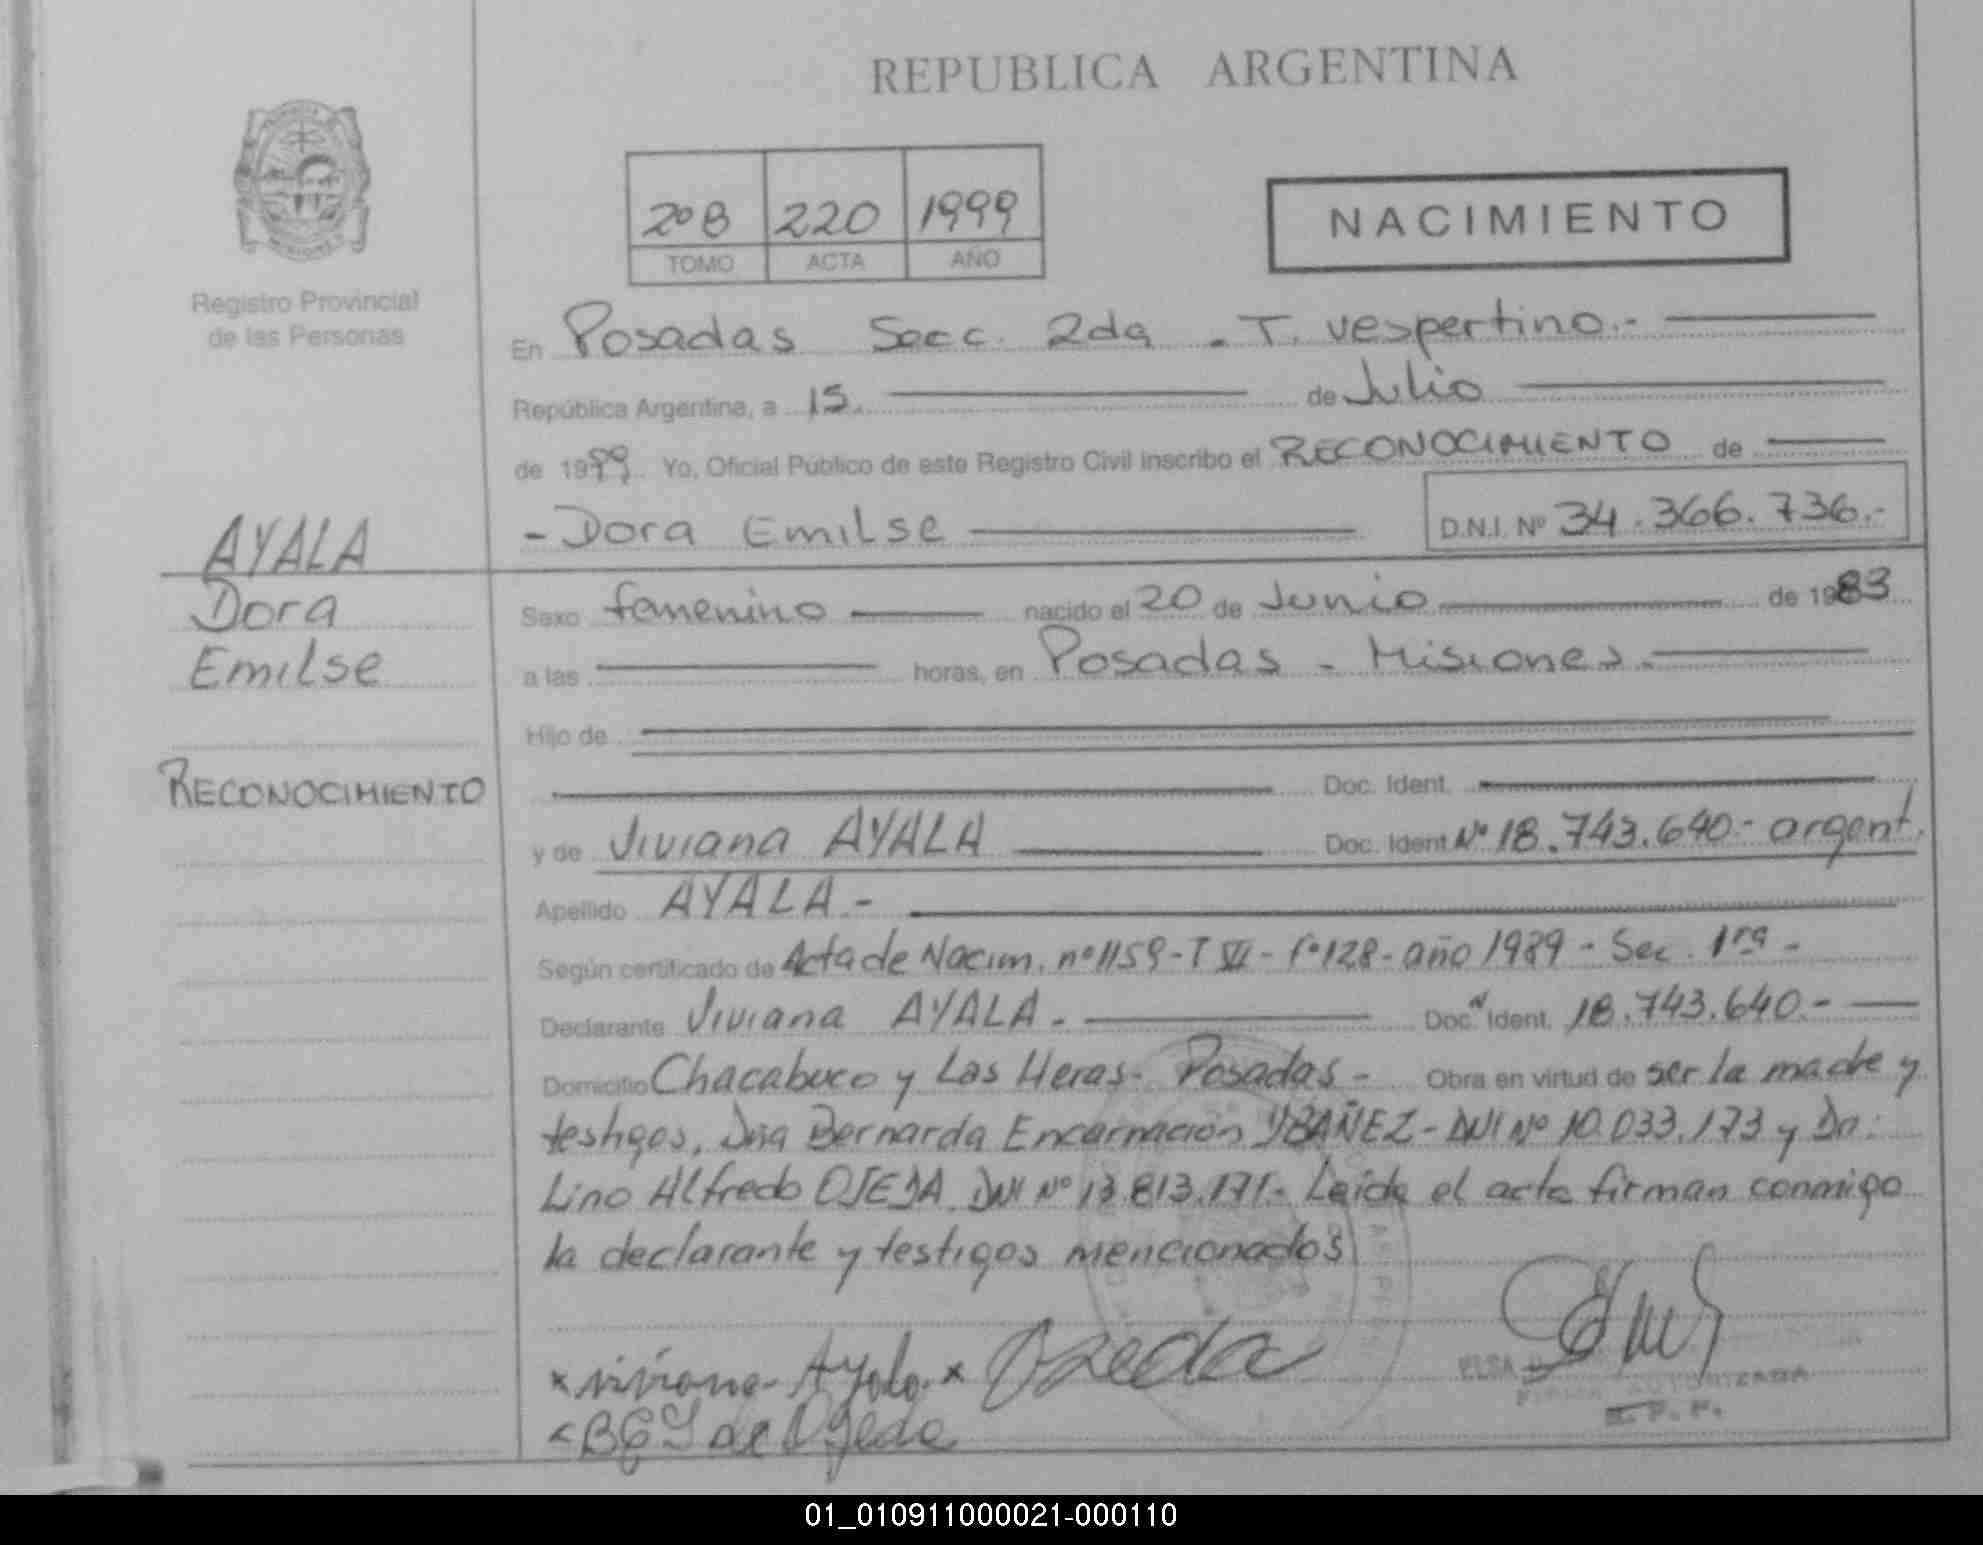 REPUBLICA ARGENTINA
2º B 220 1999
TOMO ACTA AÑO
NACIMIENTO
Registro Provincial
de las Personas
En Posadas Secc. 2da - T. vespertino.-
República Argentina, a 15. de Julio
de 1999. Yo, Oficial Público de este Registro Civil inscribo el RECONOCIMIENTO de
- Dora Emilse D.N.I. Nº 34.366.736.-
AYALA
Dora
Emilse
RECONOCIMIENTO
Sexo femenino nacido el 20 de Junio de 1983
a las horas, en Posadas - Misiones.-
Hijo de
Doc. Ident.
y de Viviana AYALA Doc. Ident Nº 18.743.640.- argent.
Apellido AYALA.-
Según certificado de Acta de Nacim. nº 1159 - T VI - fº 128 - año 1989 - Sec. 1ra -
Declarante Viviana AYALA.- Doc. N Ident. 18.743.640.-
Domicilio Chacabuco y Las Heras - Posadas - Obra en virtud de ser la madre y
testigos, Dña Bernarda Encarnación YBAÑEZ - DNI Nº 10.033.173 y Dn.
Lino Alfredo OJEDA DNI Nº 13.813.171.- Leída el acta firman conmigo
la declarante y testigos mencionados
x viviana Ayala. x Ojeda
BEY de Ojeda
ELSA
FIRMA AUTORIZADA
R.P.P.
01_010911000021-000110